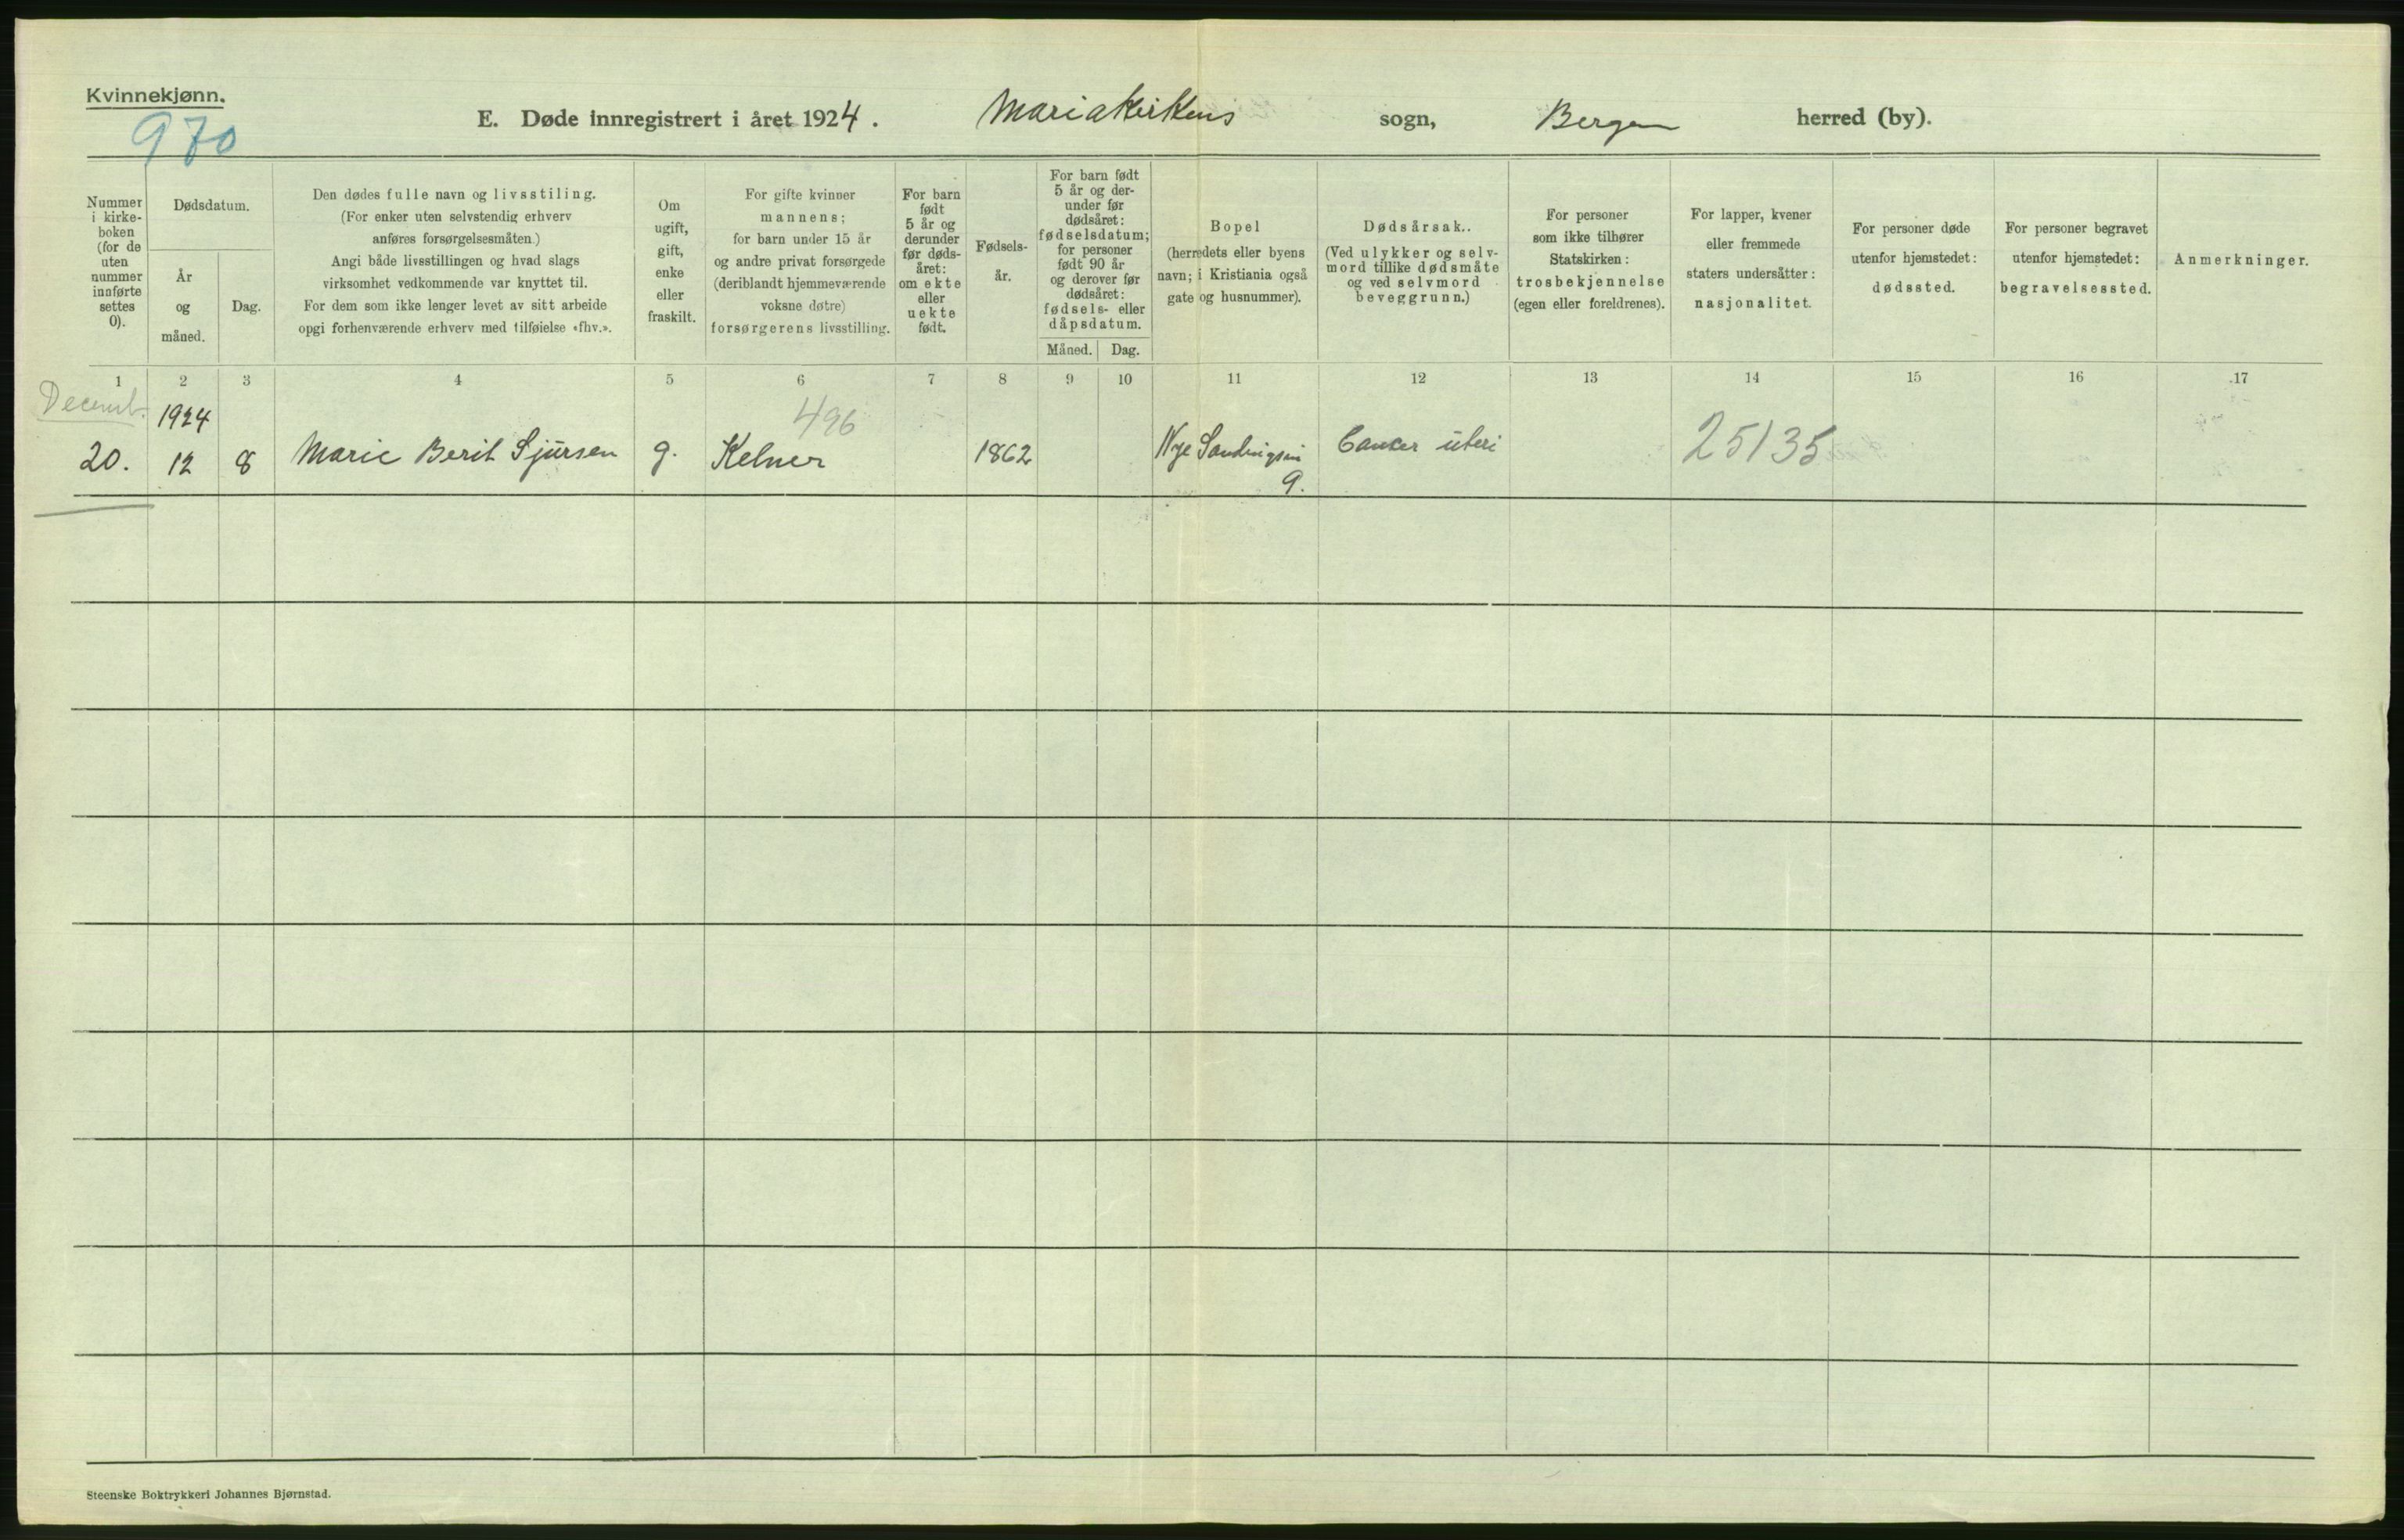 Kvinnekjønn.
970
E. Døde innregistrert i året 1924. Mariakirkens sogn, Bergen herred (by).
Nummer
i kirke-
boken
(for de
uten
nummer
innførte
settes
0).
Dødsdatum.
År
og
måned.
Dag.
Den dødes fulle navn og livsstiling.
(For enker uten selvstendig erhverv
anføres forsørgelsesmåten.)
Angi både livsstillingen og hvad slags
virksomhet vedkommende var knyttet til.
For dem som ikke lenger levet av sitt arbeide
opgi forhenværende erhverv med tilføielse «fhv.».
Om
ugift,
gift,
enke
eller
fraskilt.
For gifte kvinner
mannens;
for barn under 15 år
og andre privat forsørgede
(deriblandt hjemmeværende
voksne døtre)
forsørgerens livsstilling.
For barn
født
5 år og
derunder
før døds-
året:
om ekte
eller
uekte
født.
Fødsels-
år.
For barn født
5 år og der-
under før
dødsåret:
fødselsdatum;
for personer
født 90 år
og derover før
dødsåret:
fødsels- eller
dåpsdatum.
Måned. Dag.
Bopel
(herredets eller byens
navn; i Kristiania også
gate og husnummer).
Dødsårsak..
(Ved ulykker og selv-
mord tillike dødsmåte
og ved selvmord
beveggrunn.)
For personer
som ikke tilhører
Statskirken:
trosbekjennelse
(egen eller foreldrenes).
For lapper, kvener
eller fremmede
staters undersåtter:
nasjonalitet.
For personer døde
utenfor hjemstedet:
dødssted.
For personer begravet
utenfor hjemstedet:
begravelsessted.
Anmerkninger.
1 2 3 4 5 6 7 8 9 10 11 12 13 14 15 16 17
Decemb. 1924 496
20. 12 8 Marie Berit Sjursen g. Kelner 1862 Nye Cancer uteri 25135
9.
Steenske Boktrykkeri Johannes Bjørnstad.